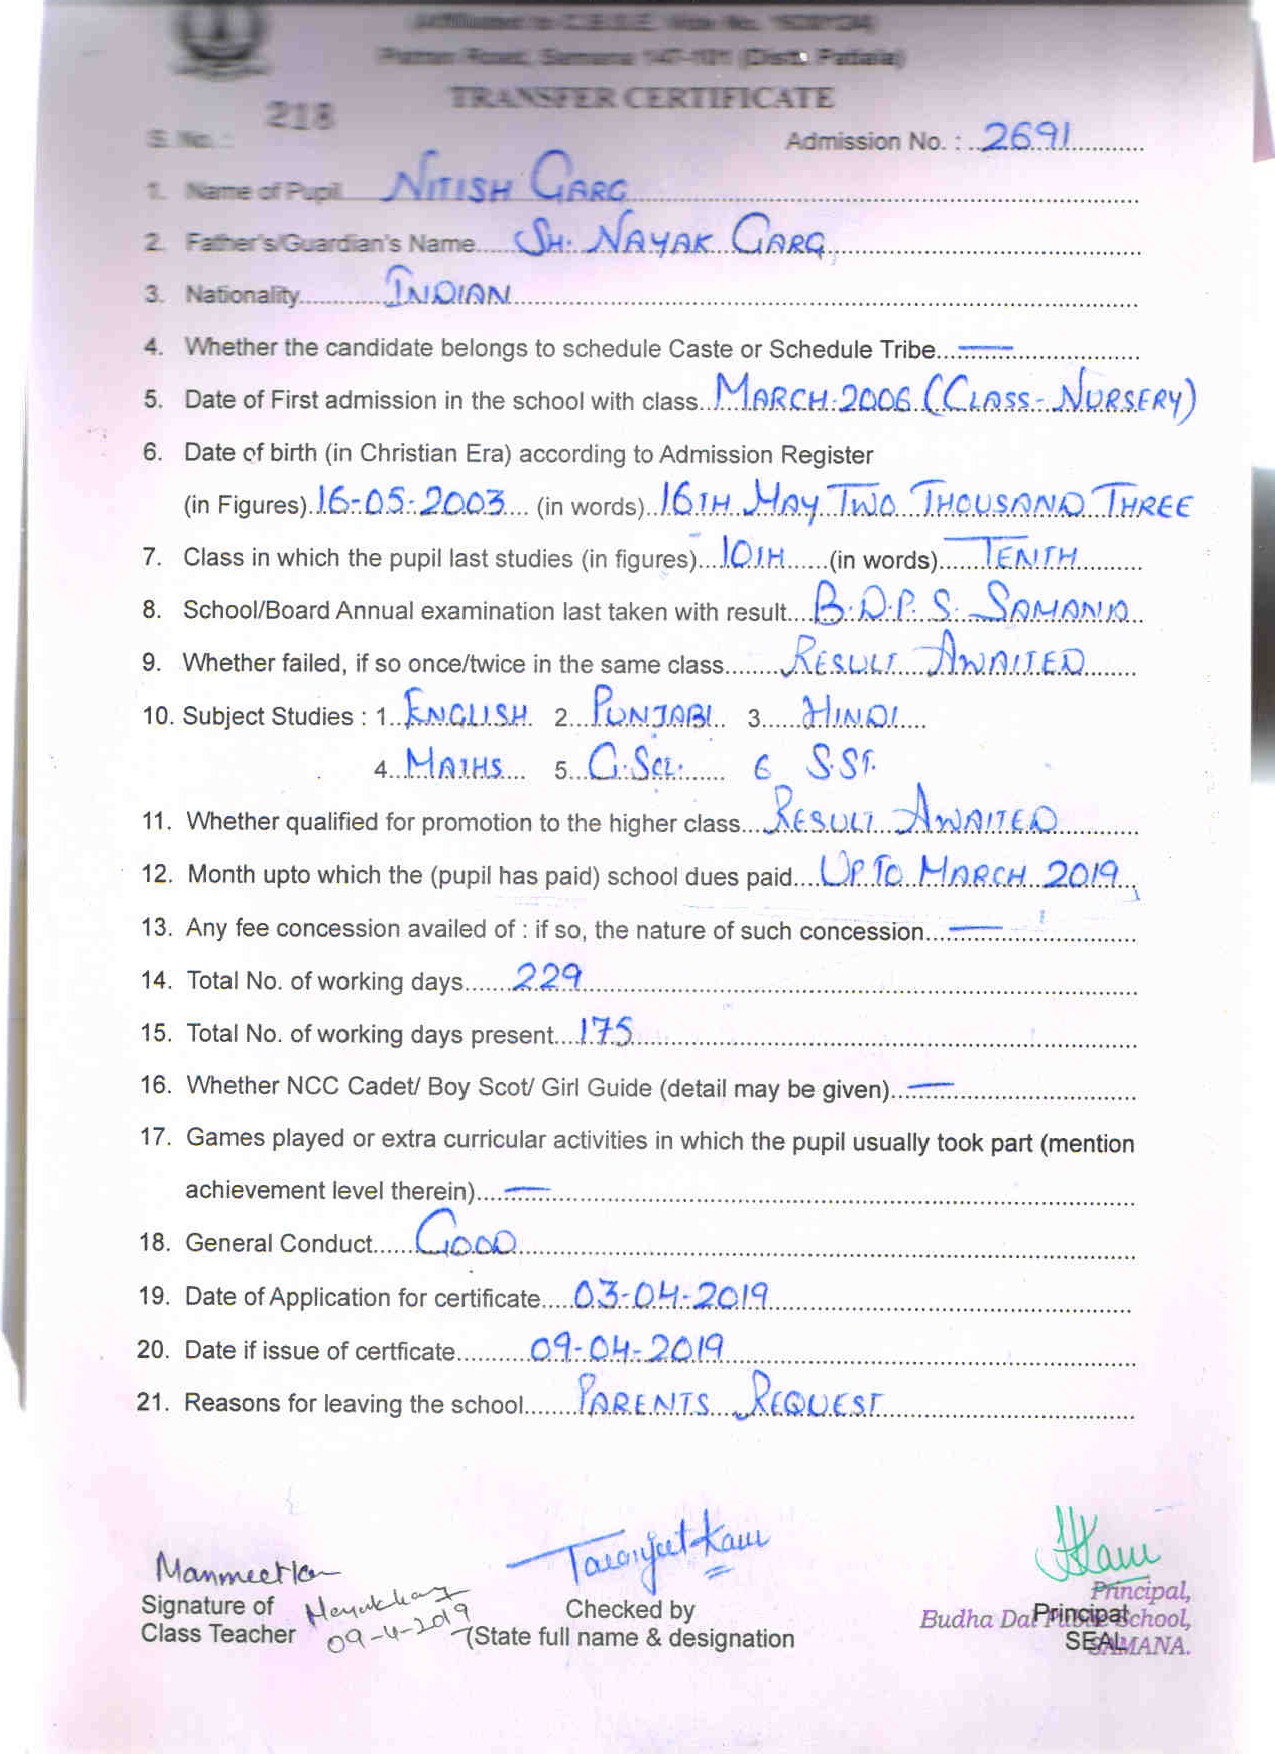 Affiliated to C.B.S.E. Vide No.
Patran Road, Samana 147-101 (Distt. Patiala)
TRANSFER CERTIFICATE
S. No. : 218 Admission No. : 2691
1. Name of Pupil NITISH GARG
2. Father's/Guardian's Name SH. NAYAK GARG
3. Nationality INDIAN
4. Whether the candidate belongs to schedule Caste or Schedule Tribe —
5. Date of First admission in the school with class MARCH-2006 (CLASS-NURSERY)
6. Date of birth (in Christian Era) according to Admission Register
(in Figures) 16-05-2003 (in words) 16TH MAY TWO THOUSAND THREE
7. Class in which the pupil last studies (in figures) 10TH (in words) TENTH
8. School/Board Annual examination last taken with result B.D.P.S. SAMANA
9. Whether failed, if so once/twice in the same class RESULT AWAITED
10. Subject Studies : 1. ENGLISH 2. PUNJABI 3. HINDI
4. MATHS 5. G.SCI. 6 S.ST.
11. Whether qualified for promotion to the higher class RESULT AWAITED
12. Month upto which the (pupil has paid) school dues paid UP TO MARCH 2019
13. Any fee concession availed of : if so, the nature of such concession —
14. Total No. of working days 229
15. Total No. of working days present 175
16. Whether NCC Cadet/ Boy Scot/ Girl Guide (detail may be given) —
17. Games played or extra curricular activities in which the pupil usually took part (mention
achievement level therein) —
18. General Conduct GOOD
19. Date of Application for certificate 03-04-2019
20. Date if issue of certficate 09-04-2019
21. Reasons for leaving the school PARENTS REQUEST
Taranjeet Kaur
Signature of
Class Teacher
09-4-2019
Checked by
(State full name & designation
Principal,
Budha Dal School,
SAMANA.
Principal
SEAL